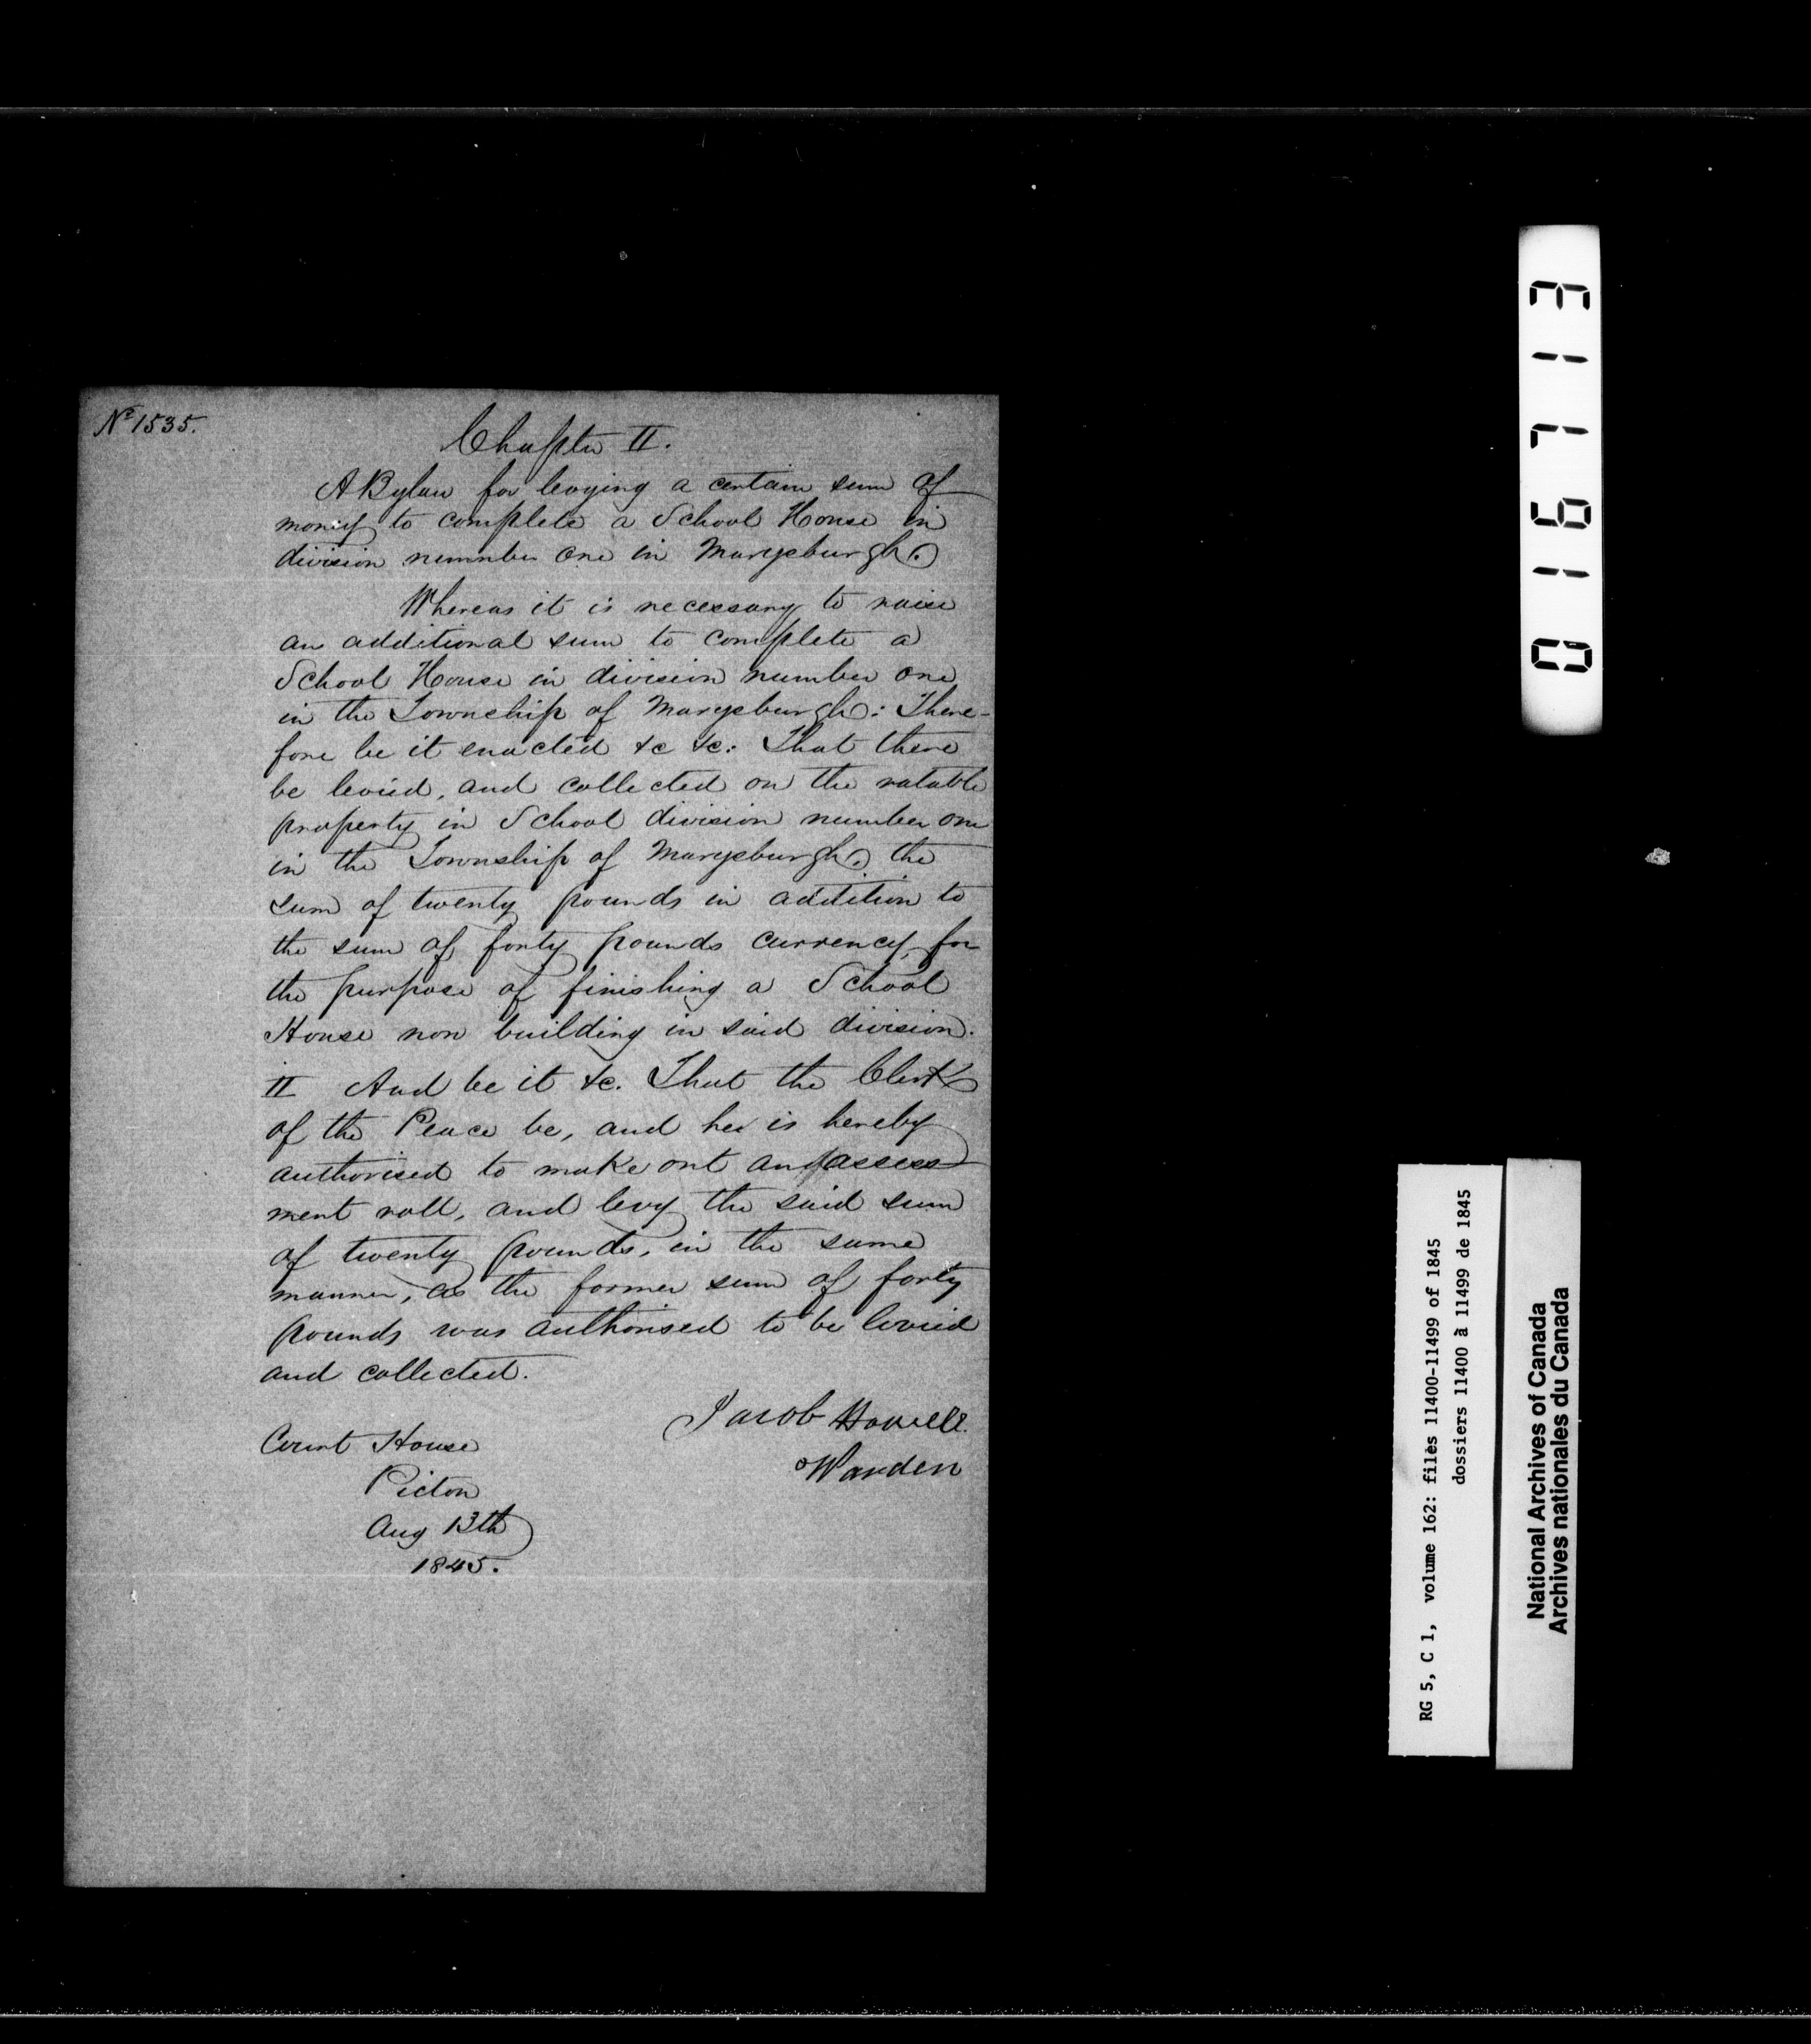 No 1535.
Chapter II.
A Bylaw for levying a certain sum of
money to complete a School House in
division number one in Marysburgh.
Whereas it is necessary to raise
an additional sum to complete a
School House in division number one
in the Township of Marysburgh: There-
fore be it enacted &c &c: That there
be levied, and collected on the ratable
property in School division number one
in the Township of Marysburgh, the
sum of twenty pounds in addition to
the sum of forty pounds currency, for
the purpose of finishing a School
House now building in said division.
II And be it &c. That the Clerk
of the Peace be, and he is hereby
authorised to make out an assess-
ment roll, and levy the said sum
of twenty pounds, in the same
manner, as the former sum of forty
pounds was authorised to be levied
and collected.
Jacob Howell
Warden
Court House
Picton
Aug 13th
1845.
016713
RG 5, C 1, volume 162: files 11400-11499 of 1845
dossiers 11400 à 11499 de 1845
National Archives of Canada
Archives nationales du Canada